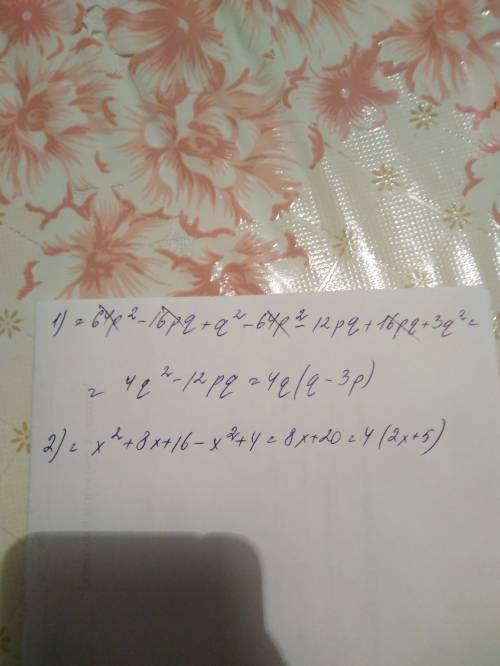 1) = 64p² - 16pq + q² - 64p² - 12pq + 16pq + 3q² =
= 4q² - 12pq = 4q(q - 3p)
2) = x² + 8x + 16 - x² + 4 = 8x + 20 = 4(2x + 5)